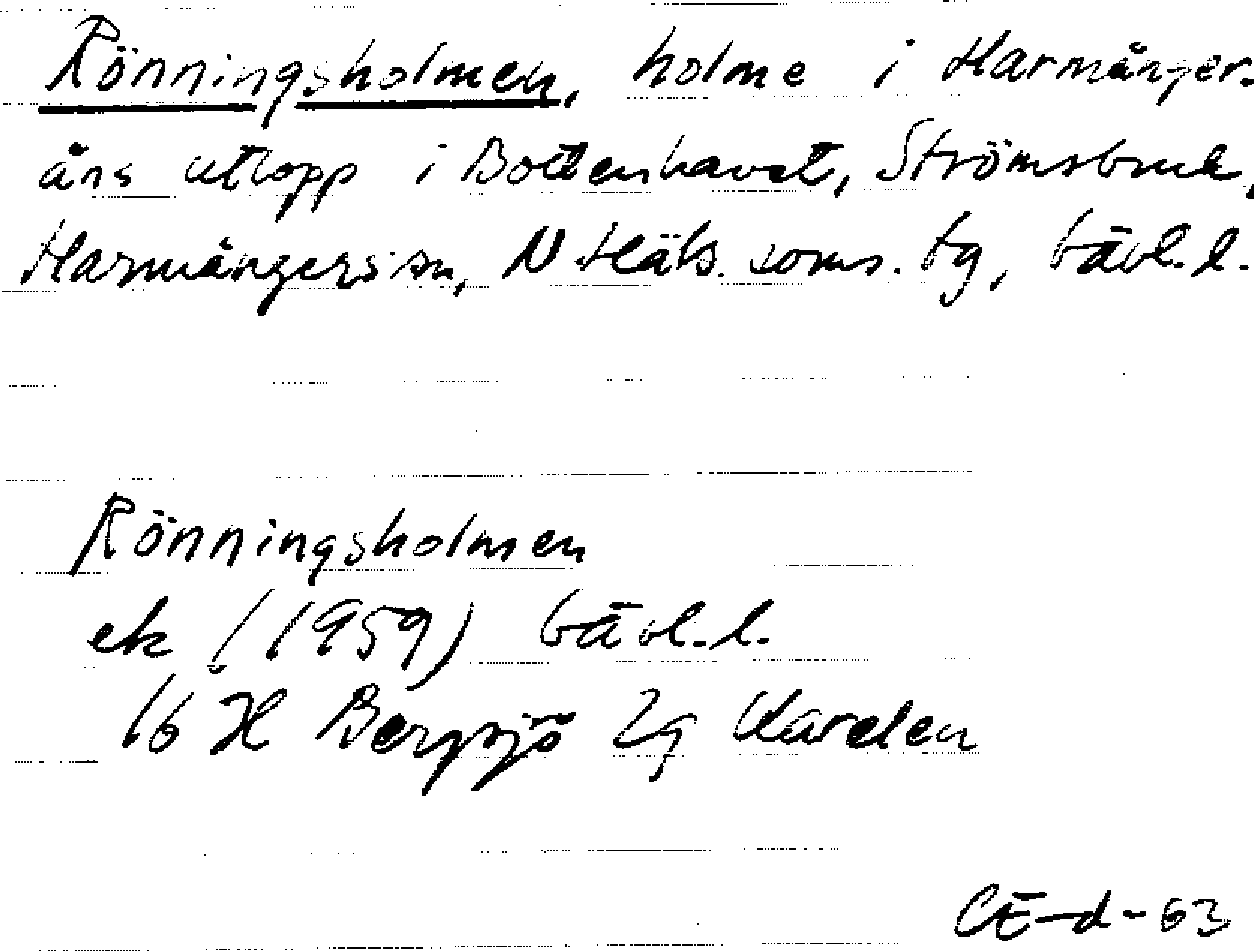 Rönningsholmen, holme i Harmånger-
åns utlopp i Bottenhavet, Strömsbruk,
Harmångers sn, N Häls. doms. tg, Gävl.l.
Rönningsholmen
ek (1959) Gävl.l.
16 H Bergsjö 2g
CE-d-63